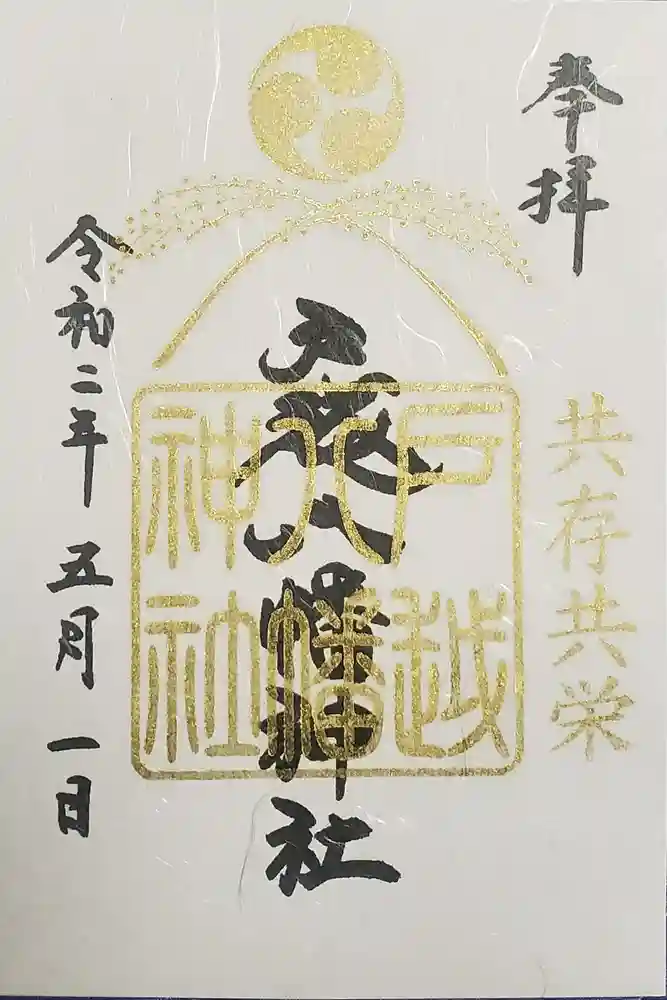 奉拝
共存共栄
戸越八幡神社
戸越
八幡
神社
令和二年 五月 一日